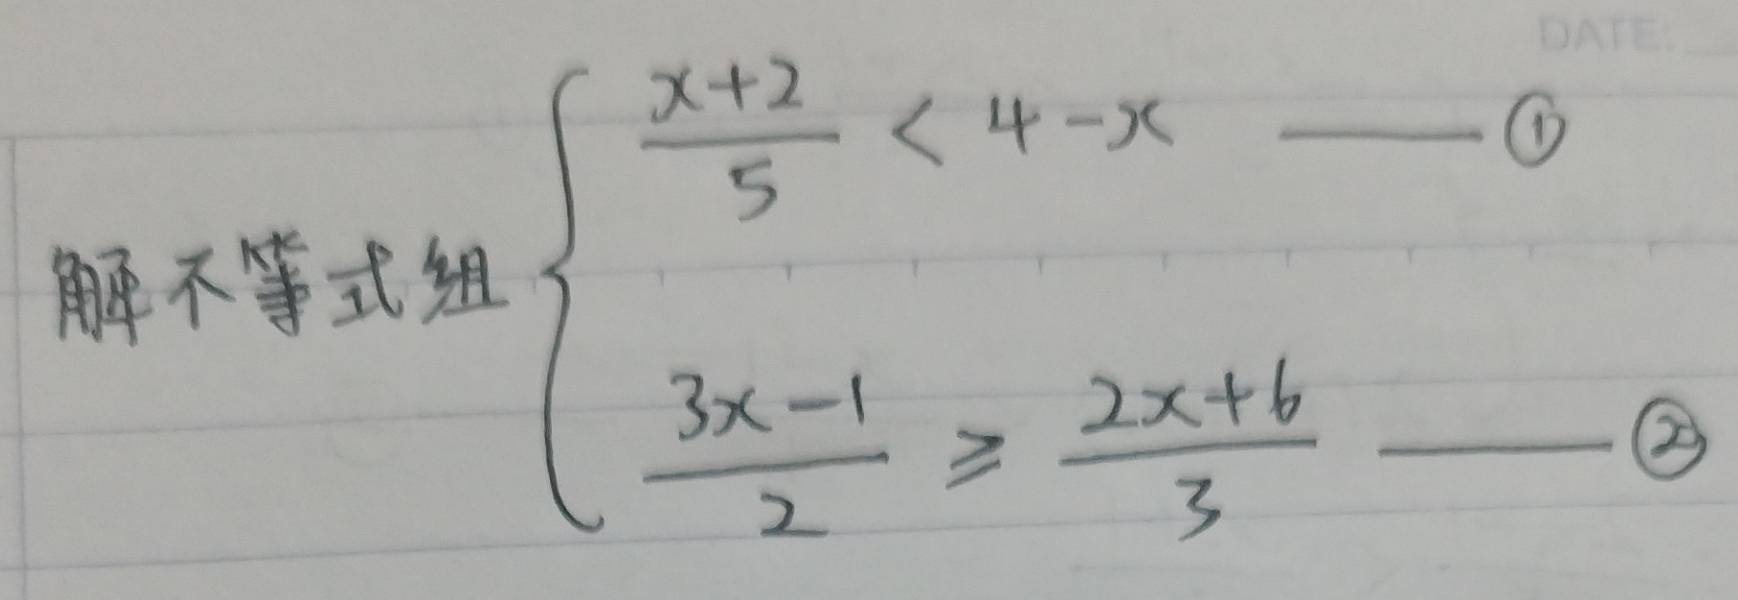 DATE:
解不等式组 { (x+2)/5 < 4-x —— ①
(3x-1)/2 ⩾ (2x+6)/3 —— ②